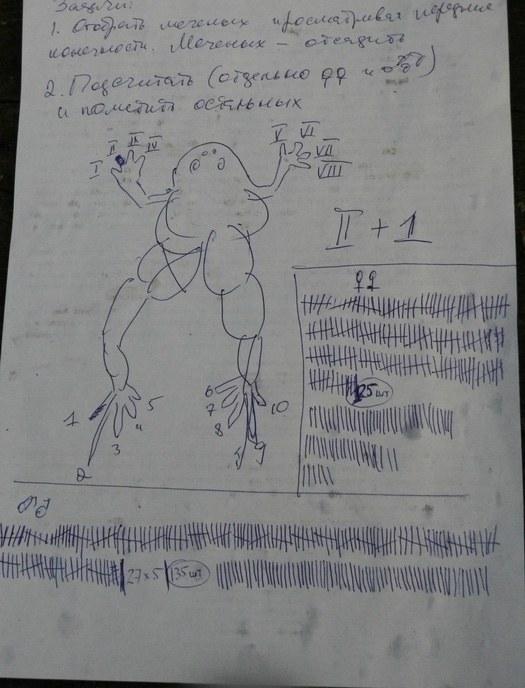 Задачи:
1. Отобрать меченых просматривая передние
конечности. Меченых – отсадить
2. Подсчитать (отдельно ♀♀ и ♂♂)
и пометить остальных
I II III IV V VI VII VIII
II + 1
♀♀
25 шт
1 2 3 4 5 6 7 8 9 10
♂♂
27x5 135 шт